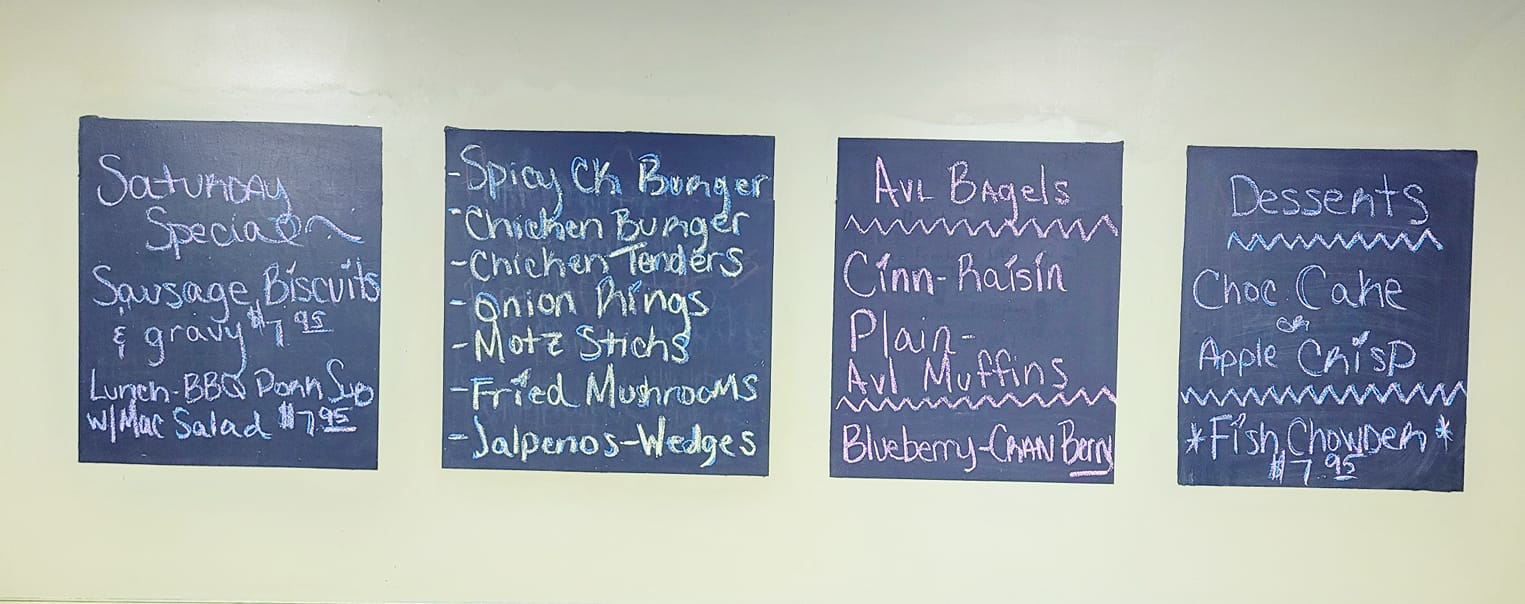 Saturday
Special
Sausage Biscuits
& gravy $7.95
Lunch-BBQ Pork Sub
w/Mac Salad $7.95
-Spicy Ck Burger
-Chicken Burger
-Chicken Tenders
-Onion Rings
-Motz Sticks
-Fried Mushrooms
-Jalpenos-Wedges
Avl Bagels
Cinn-Raisin
Plain-
Avl Muffins
Blueberry-CranBerry
Desserts
Choc Cake
or
Apple Crisp
*Fish Chowder*
$7.95